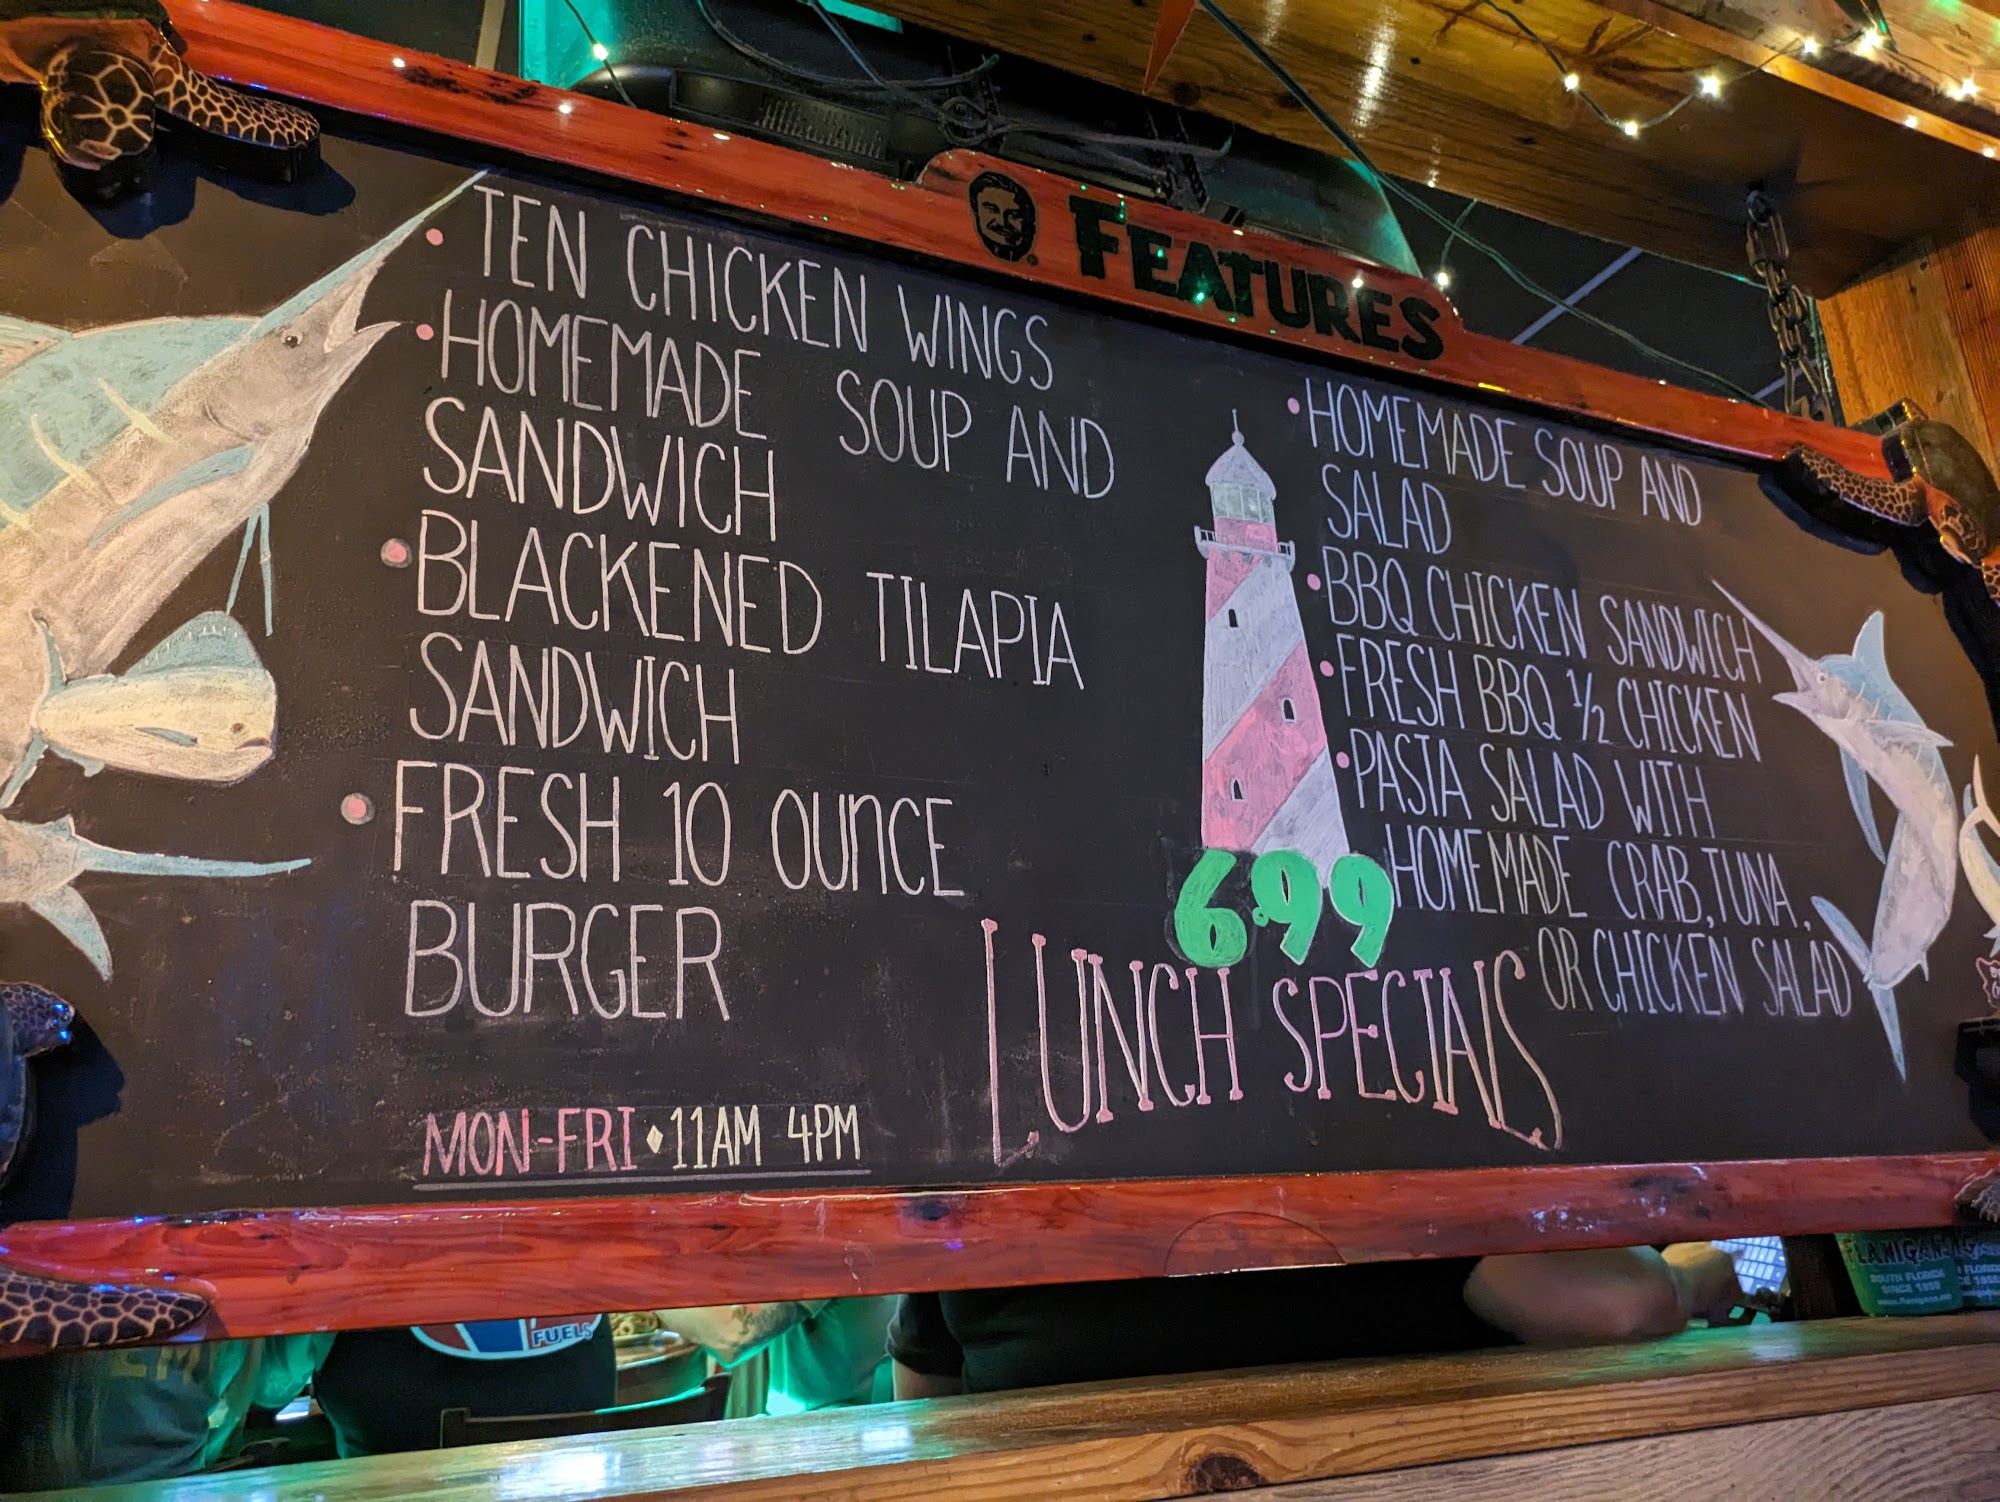 FEATURES
TEN CHICKEN WINGS
HOMEMADE SOUP AND
SANDWICH
BLACKENED TILAPIA
SANDWICH
FRESH 10 OUNCE
BURGER
MON-FRI 11AM 4PM
HOMEMADE SOUP AND
SALAD
BBQ CHICKEN SANDWICH
FRESH BBQ 1/2 CHICKEN
PASTA SALAD WITH
HOMEMADE CRAB, TUNA,
OR CHICKEN SALAD
6.99
LUNCH SPECIALS
FUELS
SOUTH FLORIDA
SINCE 1959